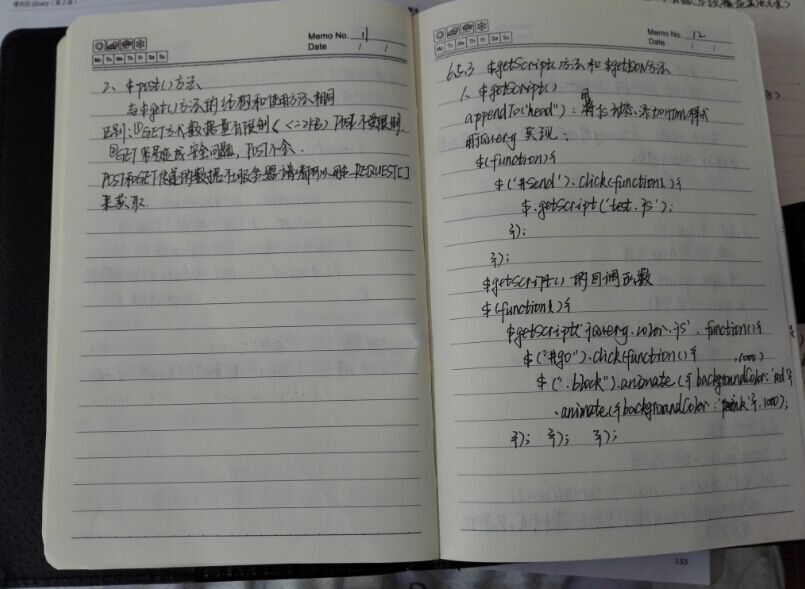 锋利的jQuery(第2版)
Memo No. 11
Mo Tu We Th Fr Sa Su
Date / /
2、$.post()方法
与$.get()方法的结构和使用方法相同
区别:①GET方式数据量有限制(<=2KB) POST不受限制.
②GET容易造成安全问题, POST不会.
POST和GET传递的数据在服务器端都可以用$_REQUEST[]
来获取.
Memo No. 12
Mo Tu We Th Fr Sa Su
Date / /
6.5.3 $getScript()方法和$getJson方法
1、$getScript()
appendTo("head"):
用jQuery 实现:
$(function(){
$('#send').click(function(){
$.getScript('test.js');
});
});
$getScript()的回调函数
$(function(){
$getScript('jquery.color.js', function(){
$("#go").click(function(){
$(".block").animate({backgroundColor:'red'},1000)
.animate({backgroundColor:'pink'},1000);
}); }); });
153